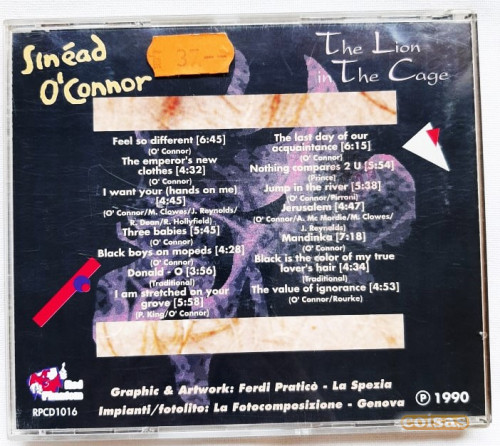 Sinéad
O'Connor
37.--
The Lion
in The Cage
Feel so different [6:45]
(O' Connor)
The emperor's new
clothes [4:32]
(O' Connor)
I want your (hands on me)
[4:45]
(O' Connor/M. Clowes/J. Reynolds/
R. Dean/R. Hollyfield)
Three babies [5:45]
(O' Connor)
Black boys on mopeds [4:28]
(O' Connor)
Donald - O [3:56]
(Traditional)
I am stretched on your
grove [5:58]
(P. King/O' Connor)
The last day of our
acquaintance [6:15]
(O' Connor)
Nothing compares 2 U [5:54]
(Prince)
Jump in the river [5:38]
(O' Connor/Pirroni)
Jerusalem [4:47]
(O' Connor/A. Mc Mordie/M. Clowes/
J. Reynolds)
Mandinka [7:18]
(O' Connor)
Black is the color of my true
lover's hair [4:34]
(Traditional)
The value of ignorance [4:53]
(O' Connor/Rourke)
Red
Phantom
RPCD1016
Graphic & Artwork: Ferdi Praticò - La Spezia
Impianti/fotolito: La Fotocomposizione - Genova
℗ 1990
coisas